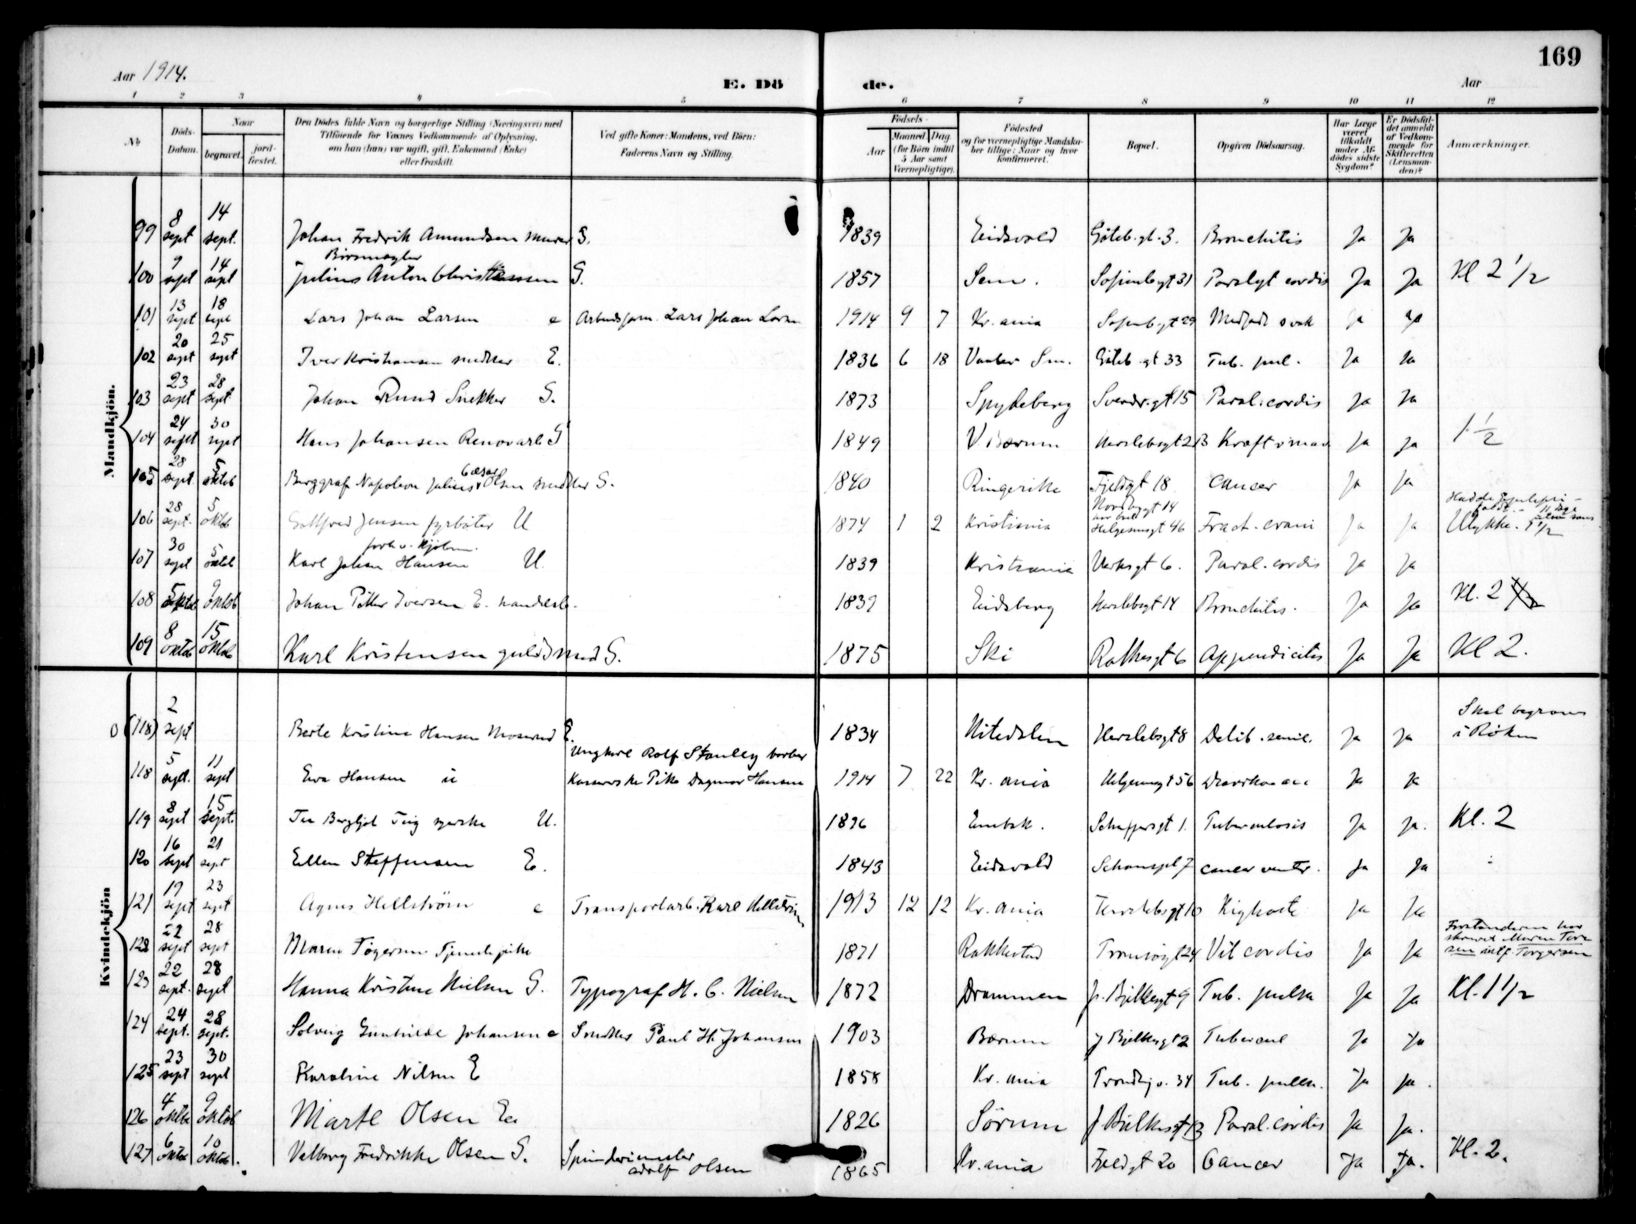 169
Aar 1914.
E. Dö de.
Aar
1 2 3 4 5 6 7 8 9 10 11 12
No
Döds-Datum.
Naar
begravet.
jord-fæstet.
Den Dödes fulde Navn og borgerlige Stilling (Næringsvei) med
Tilföiende for Voxnes Vedkommende af Oplysning,
om han (hun) var ugift, gift, Enkemand (Enke)
eller fraskilt.
Ved gifte Koner: Mandens, ved Börn:
Faderens Navn og Stilling.
Födsels-
Aar
Maaned Dag
(for Börn indtil
5 Aar samt
Værnepligtige).
Födested
og for værnepligtige Mandska-
ber tillige: Naar og hvor
konfirmeret.
Bopæl.
Opgiven Dödsaarsag.
Har Læge
været
tilkaldt
under Af-
dödes sidste
Sygdom?
Er Dödsfal-
det anmeldt
af Vedkom-
mende for
Skifteretten
(Lensman-
den)?
Anmærkninger.
Mandkjön.
99 8 sept 14 sept. Johan Fredrik Amundsen murer G. 1839 Eidsvold Göteb.gt. 3. Bronchitis Ja Ja
100 9 sept 14 sept Julius Anton Christensen G. 1857 Sem. Sofienbgt 31 Paralyt cordis Ja Ja Kl 2 1/2
101 13 sept 18 sept Lars Johan Larsen e Lars Johan Larsen 1914 9 7 Kr.ania Sofienbgt 29 Medfødt svak Ja Ja
102 20 sept 25 sept Iver Kristiansen snekker E. 1836 6 18 Göteb.gt 33 Tub. pul. Ja Ja
103 23 sept 28 sept Johan Rund Snekker G. 1873 Spydeberg Sverdr.gt 15 Paral. cordis Ja Ja
104 24 sept 30 sept Hans Johansen Renovarb. G 1849 V Bærum Herslebsgt 2 Ja Ja 1 1/2
105 28 sept. 5 oktob Berggraf Napoleon Julius Cæsar Olsen snekker G. 1840 Ringerike Fjeldgt 18 cancer Ja Ja
106 28 sept. 5 oktob Gottfred Jensen fyrböter U 1874 1 2 Kristiania Nordbygt 14 Helgesensgt 46 Fract. cranii Ja Ja Ulykke.
107 30 sept 5 oktob Karl Johan Hansen U. 1839 Kristiania Verksgt 6. Paral. cordis Ja Ja
108 5 oktob 9 oktob Johan Petter Iversen E. 1839 Eidsberg Herslebsgt 14 Bronchitis. Ja Ja Kl. 2
109 8 oktob 15 oktob Karl Kristensen guldsmed G. 1875 Ski Rathesgt 6 Appendicitis Ja Ja Kl 2.
Kvindekjön
0 (118) 2 sept Berte Kristine Hansen Moserud E. 1834 Nitedalen Herslebsgt 8 Debil. senil. Ja Ja Skal begraves
i Röken
118 5 sept. 11 sept Eva Hansen u Ungkarl Rolf Stanley barber
Pike Dagmar Hansen 1914 7 22 Kr. ania Helgesensgt 56 Ja Ja
119 8 sept 15 sept. U. 1896 Schaffersgt 1. Tuberculosis Ja Ja. Kl. 2
120 16 sept 21 sept Ellen Steffensen E. 1843 Eidsvold Schouspl 7 cancer ventr. Ja Ja
121 19 sept 23 sept Agnes Hellström e Transportarb. Karl Hellström 1913 12 12 Kr. ania Herslebsgt 10 Kighoste Ja Ja
122 22 sept 28 sept Maren Togersen Tjenestepike 1871 Rakkestad Tromsögt 24 Vit cordis Ja Ja Forstanderen har
skrevet Maren Tor-
sen istf Torgersen
123 22 sept. 28 sept Hanna Kristine Nielsen G. Typograf H. C. Nielsen 1872 Drammen J. Bjelkesgt 9 Tub. pulm Ja Ja Kl. 1 1/2
124 24 sept. 28 sept. Solveig Gunhilde Johansen e Snekker Paul H. Johansen 1903 Bærum J Bjelkesgt 2 Tubercul Ja Ja
125 23 sept 30 sept Karoline Nilsen E 1858 Kr. ania Trondhj.v. 34 Tub. pulm. Ja Ja.
126 4 oktob 9 oktob Marte Olsen E. 1826 Sörum J. Bjelkesgt 13 Paral. cordis Ja Ja.
127 6 oktob 10 oktob. Valborg Fredrikke Olsen G. Spinderimester
Adolf Olsen 1865 Kr.ania Fjeldgt 20 Cancer Ja Ja. Kl. 2.